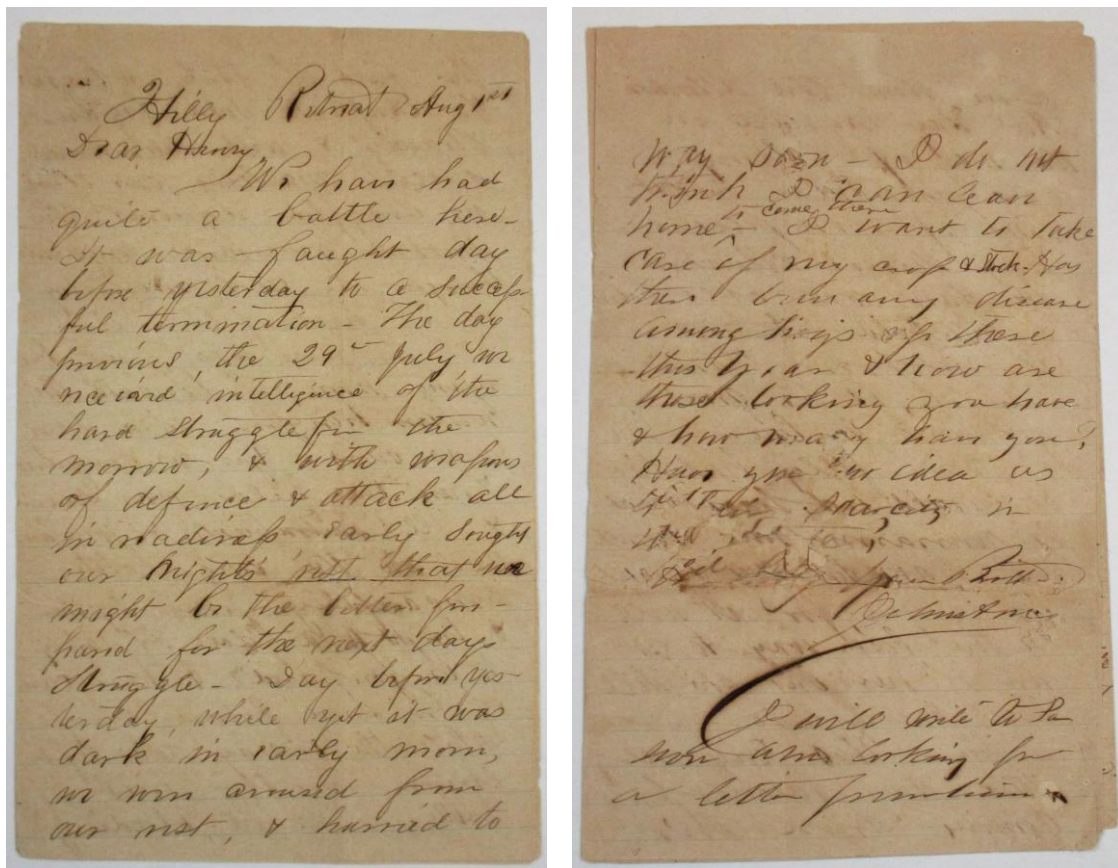 Hilly Retreat Aug 1st
Dear Henry
We have had
quite a battle here -
It was fought day
before yesterday to a success-
ful termination - The day
previous, the 29th July we
received intelligence of the
hard struggle for the
morrow, & with weapons
of defence & attack all
in readiness, early sought
our nights rest that we
might be the better pre-
pared for the next days
struggle - Day before yes-
terday, while yet it was
dark in early morn,
we were aroused from
our rest, & hurried to
way soon - I do not
think I can leave
home to come there - I want to take
care of my crop & stock - Has
there been any disease
among hogs up there
this year & how are
those looking you have
& how many have you?
Have you no idea as
scarcity in
your Brother
I will write to Pa
soon am looking for
a letter from him